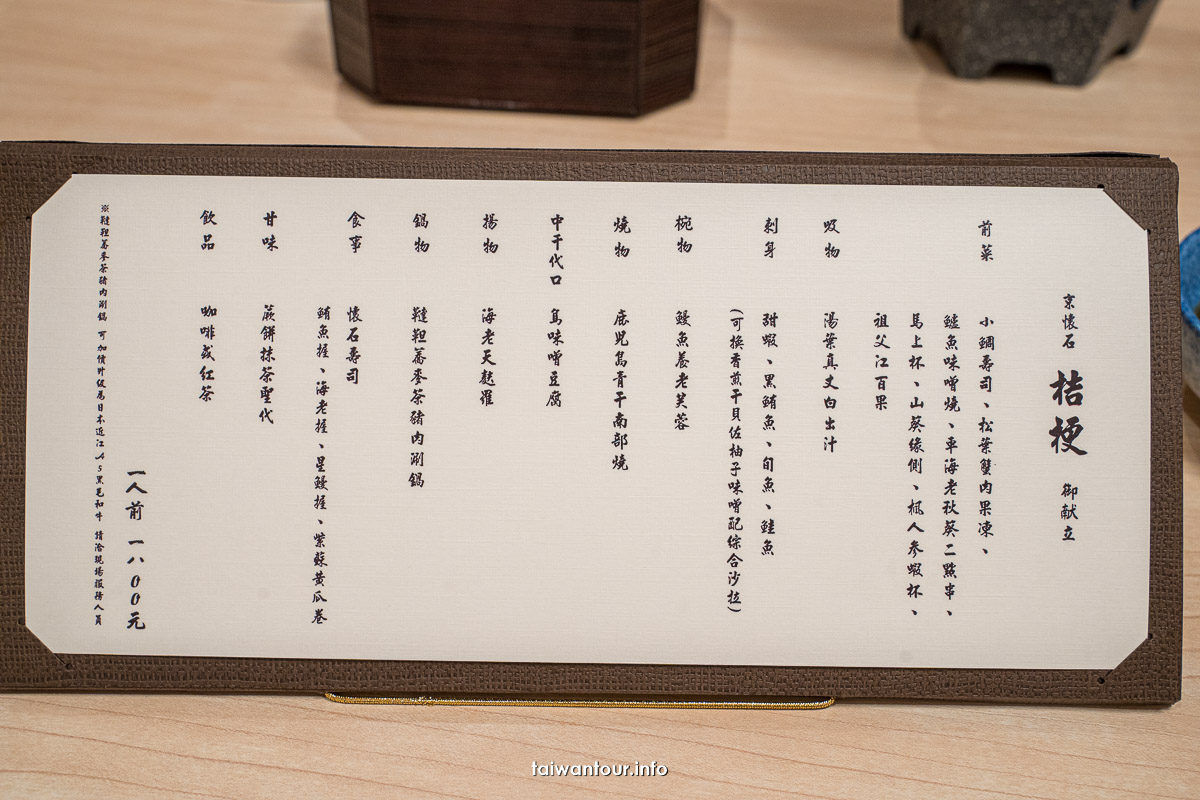 京懷石 桔梗 御献立
前菜 小鯛壽司、松葉蟹肉果凍、
鱸魚味噌燒、車海老秋葵二點串、
馬上杯、山葵緣側、楓人參蝦杯、
祖父江百果
吸物 湯葉真丈白出汁
刺身 甜蝦、黑鮪魚、旬魚、鮭魚
(可換香煎干貝佐柚子味噌配綜合沙拉)
椀物 鰻魚養老芙蓉
燒物 鹿児島青干南部燒
中干代口 島味噌豆腐
揚物 海老天麩羅
鍋物 韃靼蕎麥茶豬肉涮鍋
食事 懷石壽司
鮪魚握、海老握、星鰻握、紫蘇黃瓜卷
甘味 蕨餅抹茶聖代
飲品 咖啡或紅茶
一人前 一八00元
※韃靼蕎麥茶豬肉涮鍋 可加價升級為日本近江A5黑毛和牛 請洽現場服務人員
taiwantour.info